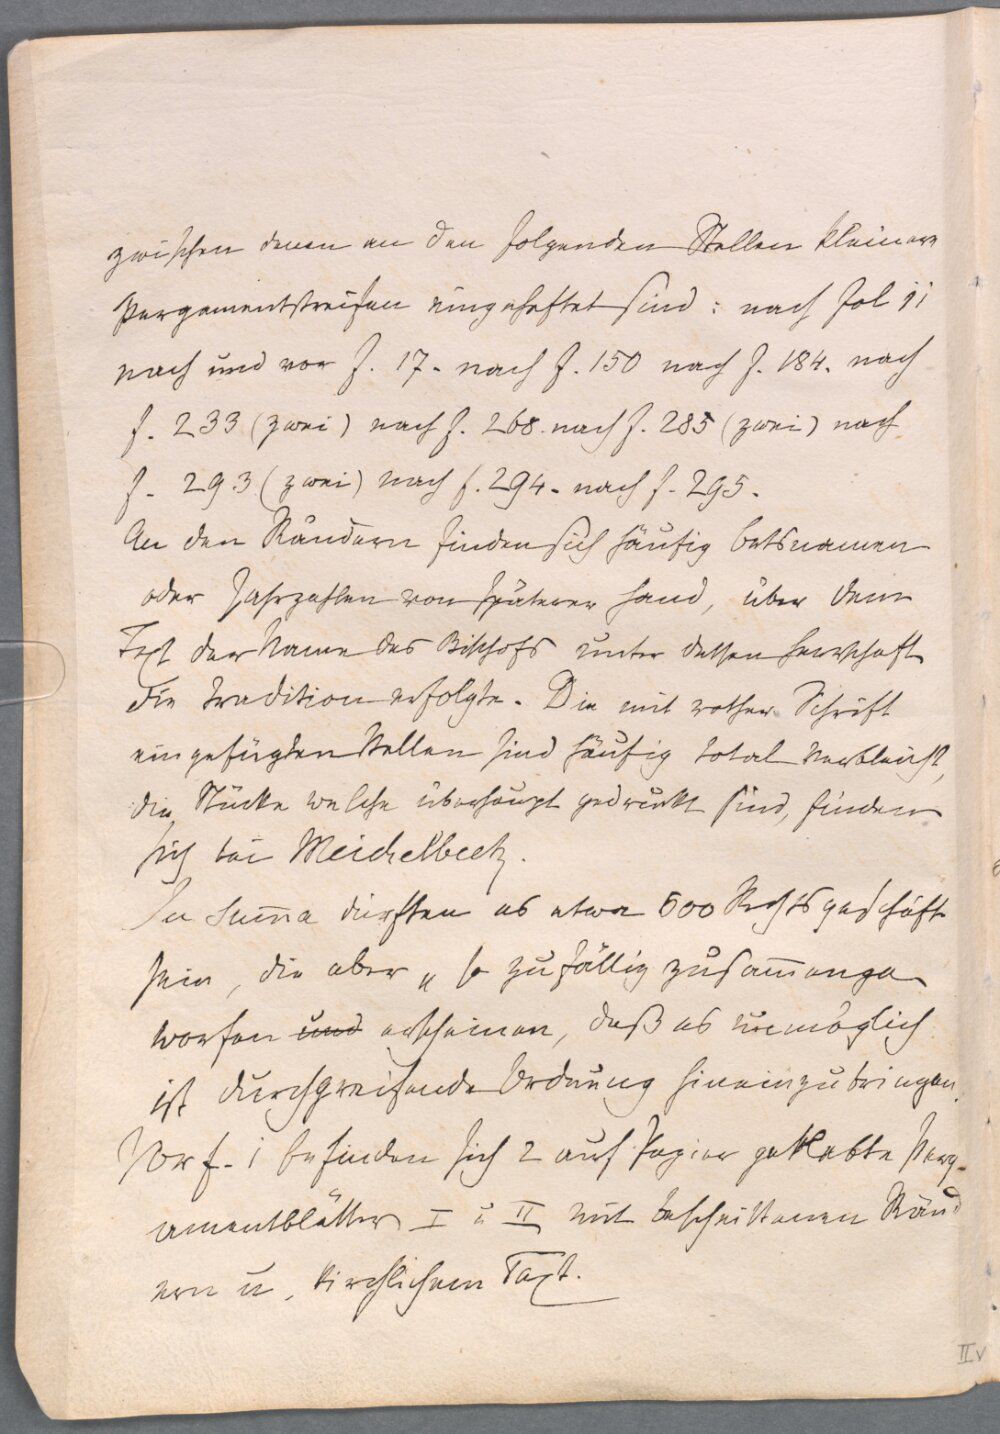 zwischen denen an den folgenden Stellen kleinere
Pergamentstreifen eingeheftet sind: nach fol 11
nach und vor f. 17. nach f. 150 nach f. 184. nach
f. 233 (zwei) nach f. 268. nach f. 285 (zwei) nach
f. 293 (zwei) nach f. 294. nach f. 295.
An den Rändern finden sich häufig Ortsnamen
oder Jahrzahlen von späterer Hand, über dem
Text der Name des Bischofs unter dessen Herrschaft
die Tradition erfolgte. Die mit rother Schrift
eingefügten Stellen sind häufig total verbleicht,
die Stücke welche überhaupt gedruckt sind, finden
sich bei Meichelbeck.
In Sum̄a dürften es etwa 600 Rechtsgeschäfte
sein, die aber „so zufällig zusam̄enge
worfen und erscheinen, daß es unmöglich
ist durchgreifende Ordnung hineinzubringen.
Vor f. 1 befinden sich 2 auf Papier geklebte Perg-
amentblätter I u II mit beschnittenen Ränd
ern u. kirchlichem Text.
IIv